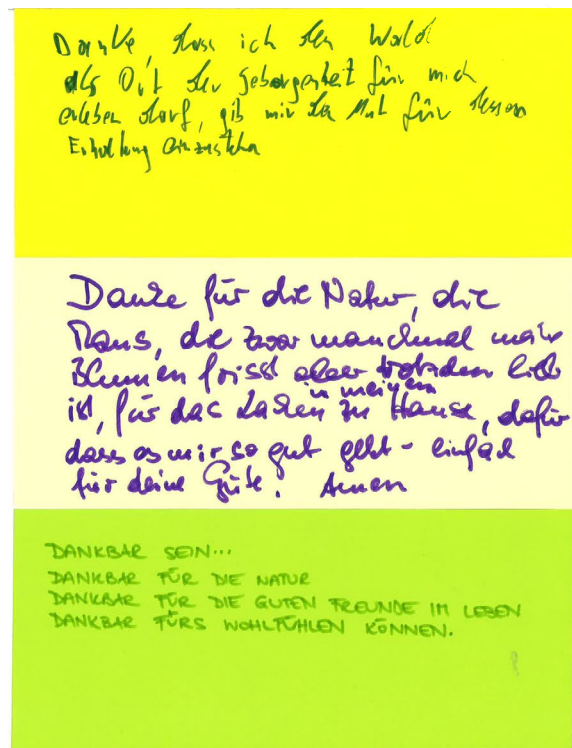 Danke, dass ich den Wald
als Ort der Geborgenheit für mich
erleben darf, gib mir den Mut für dessen
Erhaltung einzustehen
Danke für die Natur, die
Maus, die zwar manchmal meine
Blumen frisst aber trotzdem lieb
ist, für das Lachen in meinem zu Hause, dafür
dass es mir so gut geht - einfach
für deine Güte! Amen
DANKBAR SEIN...
DANKBAR FÜR DIE NATUR
DANKBAR FÜR DIE GUTEN FREUNDE IM LEBEN
DANKBAR FÜRS WOHLFÜHLEN KÖNNEN.